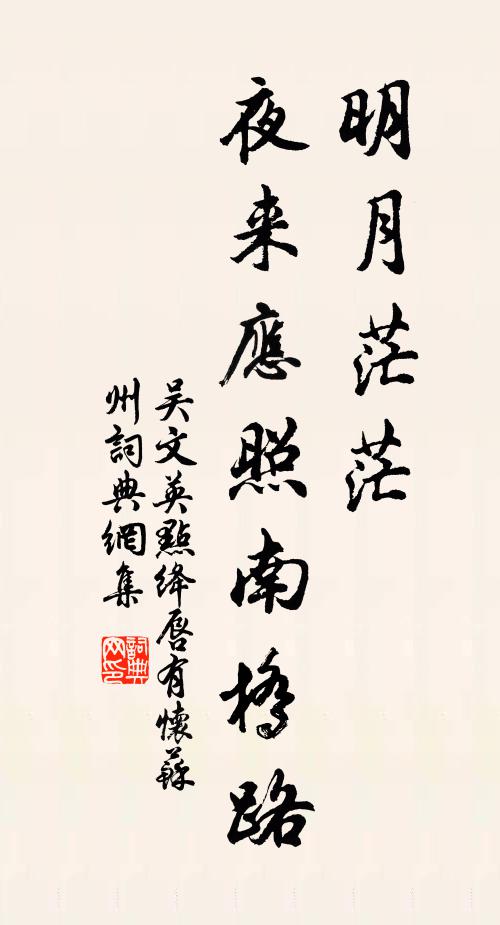 明月茫茫
夜来應照南橋路
吴文英點絳唇有懷蘇
州詞典網集
詞典
网印